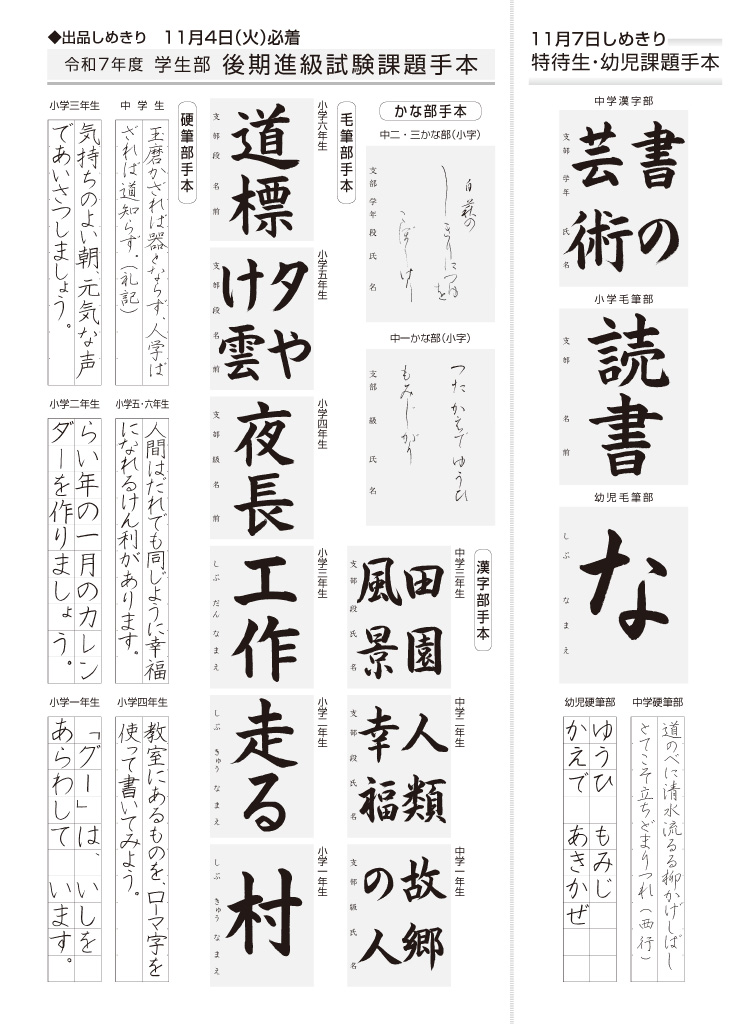 ◆出品しめきり 11月4日(火)必着
令和7年度 学生部 後期進級試験課題手本
かな部手本
中二・三かな部(小字)
白萩の
しきりにつゆを
こぼしけり
支部 学年 段 氏名
中一かな部(小字)
つた かえで ゆうひ
もみじがり
支部 級 氏名
漢字部手本
中学三年生
田園
風景
支部 段 氏名
中学二年生
人類
幸福
支部 段 氏名
中学一年生
故郷
の人
支部 級 氏名
毛筆部手本
小学六年生
道標
支部 段 名前
小学五年生
夕や
け雲
支部 段 名前
小学四年生
夜長
支部 級 名前
小学三年生
工作
しぶ だん なまえ
小学二年生
走る
しぶ きゅう なまえ
小学一年生
村
しぶ きゅう なまえ
硬筆部手本
中学生
玉磨かざれば器とならず、人学ば
ざれば道知らず。(礼記)
小学五・六年生
人間はだれでも同じように幸福
になれるけん利があります。
小学四年生
教室にあるものを、ローマ字を
使って書いてみよう。
小学三年生
気持ちのよい朝、元気な声
であいさつしましょう。
小学二年生
らい年の一月のカレン
ダーを作りましょう。
小学一年生
「グー」は、いしを
あらわして います。
11月7日しめきり
特待生・幼児課題手本
中学漢字部
書の
芸術
支部 学年 氏名
小学毛筆部
読書
支部 名前
幼児毛筆部
な
しぶ なまえ
中学硬筆部
道のべに清水流るる柳かげしばし
とてこそ立ちどまりつれ(西行)
幼児硬筆部
ゆうひ もみじ
かえで あきかぜ